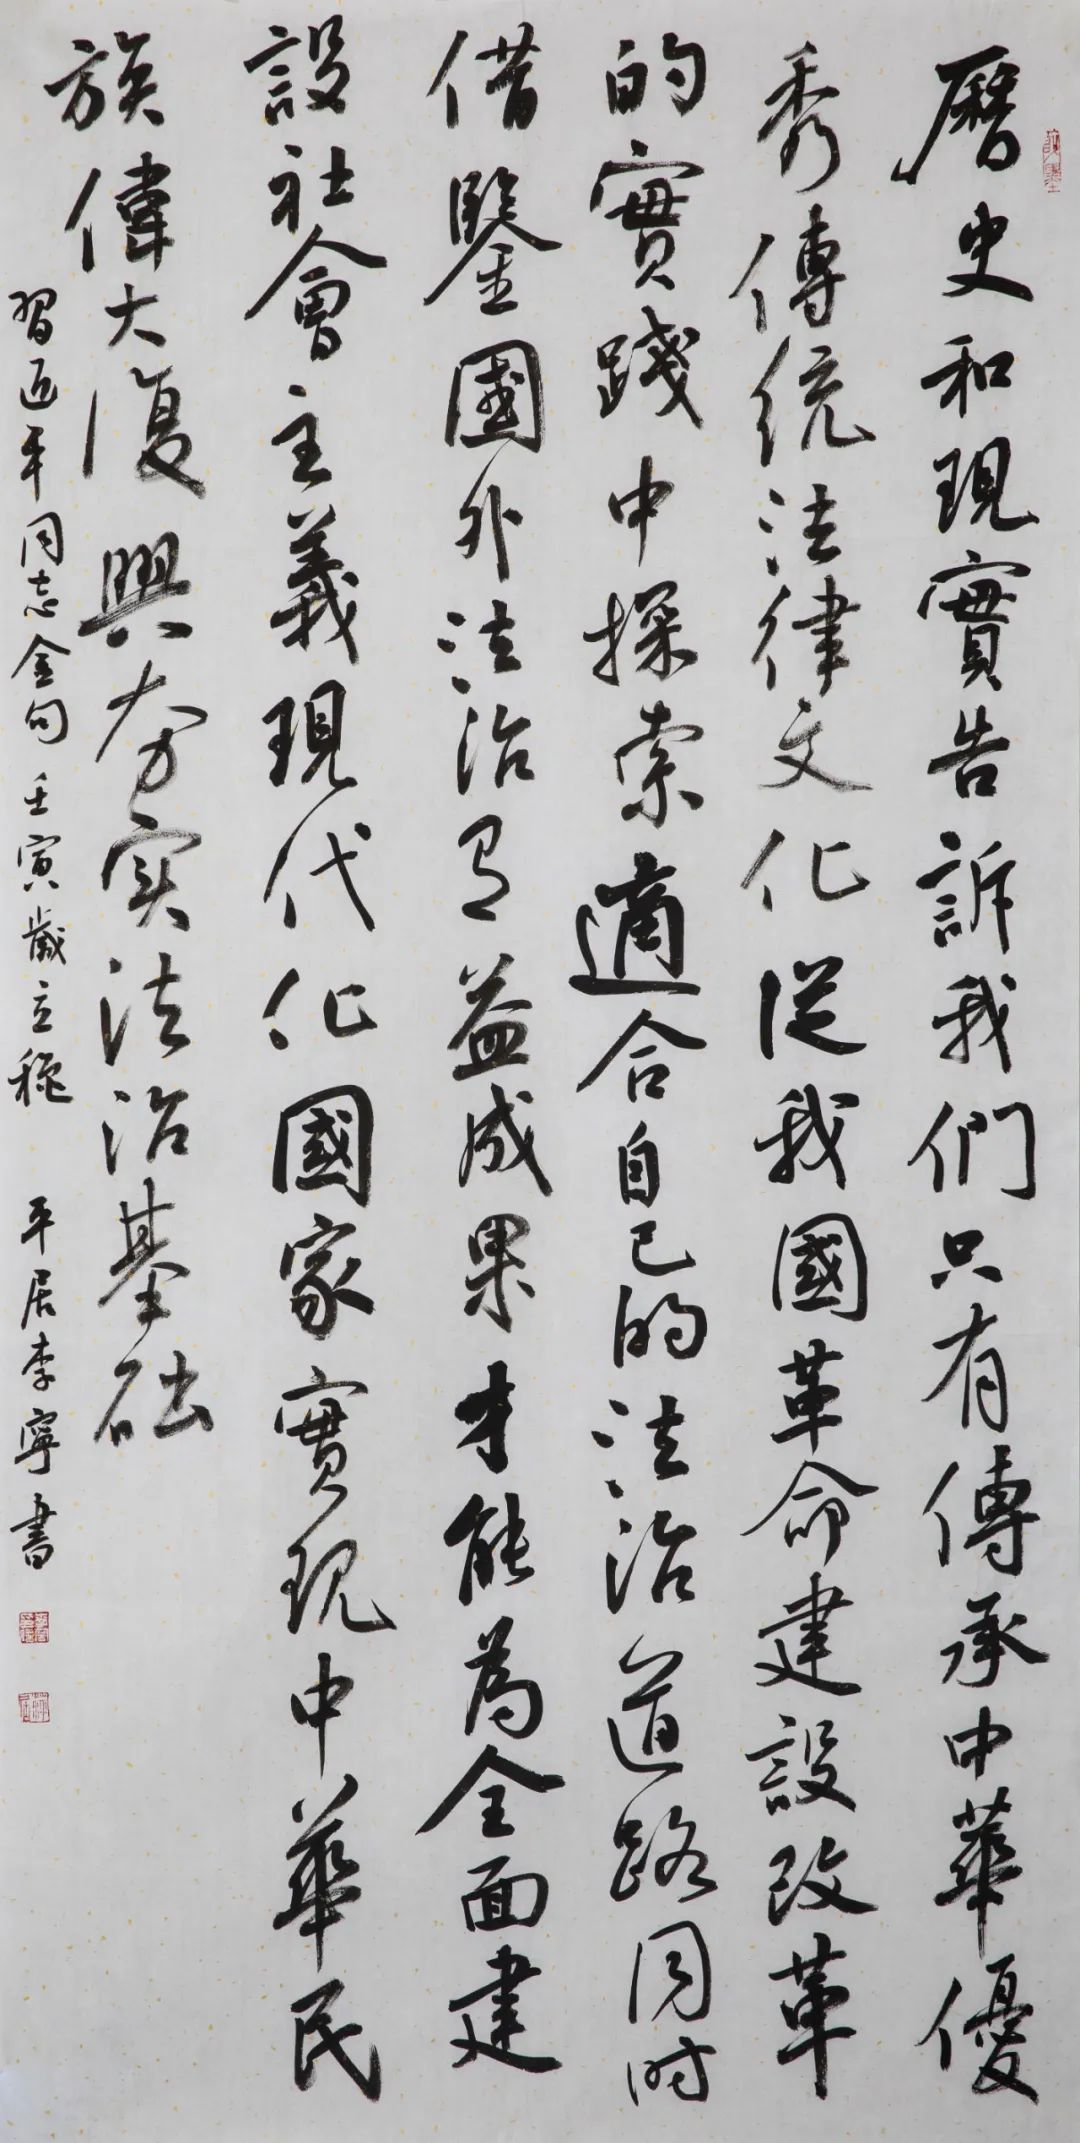 曆史和現實告訴我們只有傳承中華優
秀傳統法律文化從我國革命建設改革
的實踐中探索適合自己的法治道路同时
借鑒國外法治有益成果才能為全面建
設社會主義現代化國家實現中華民
族偉大復興夯实法治基础
習近平同志金句 壬寅歲立秋 平居李寧書